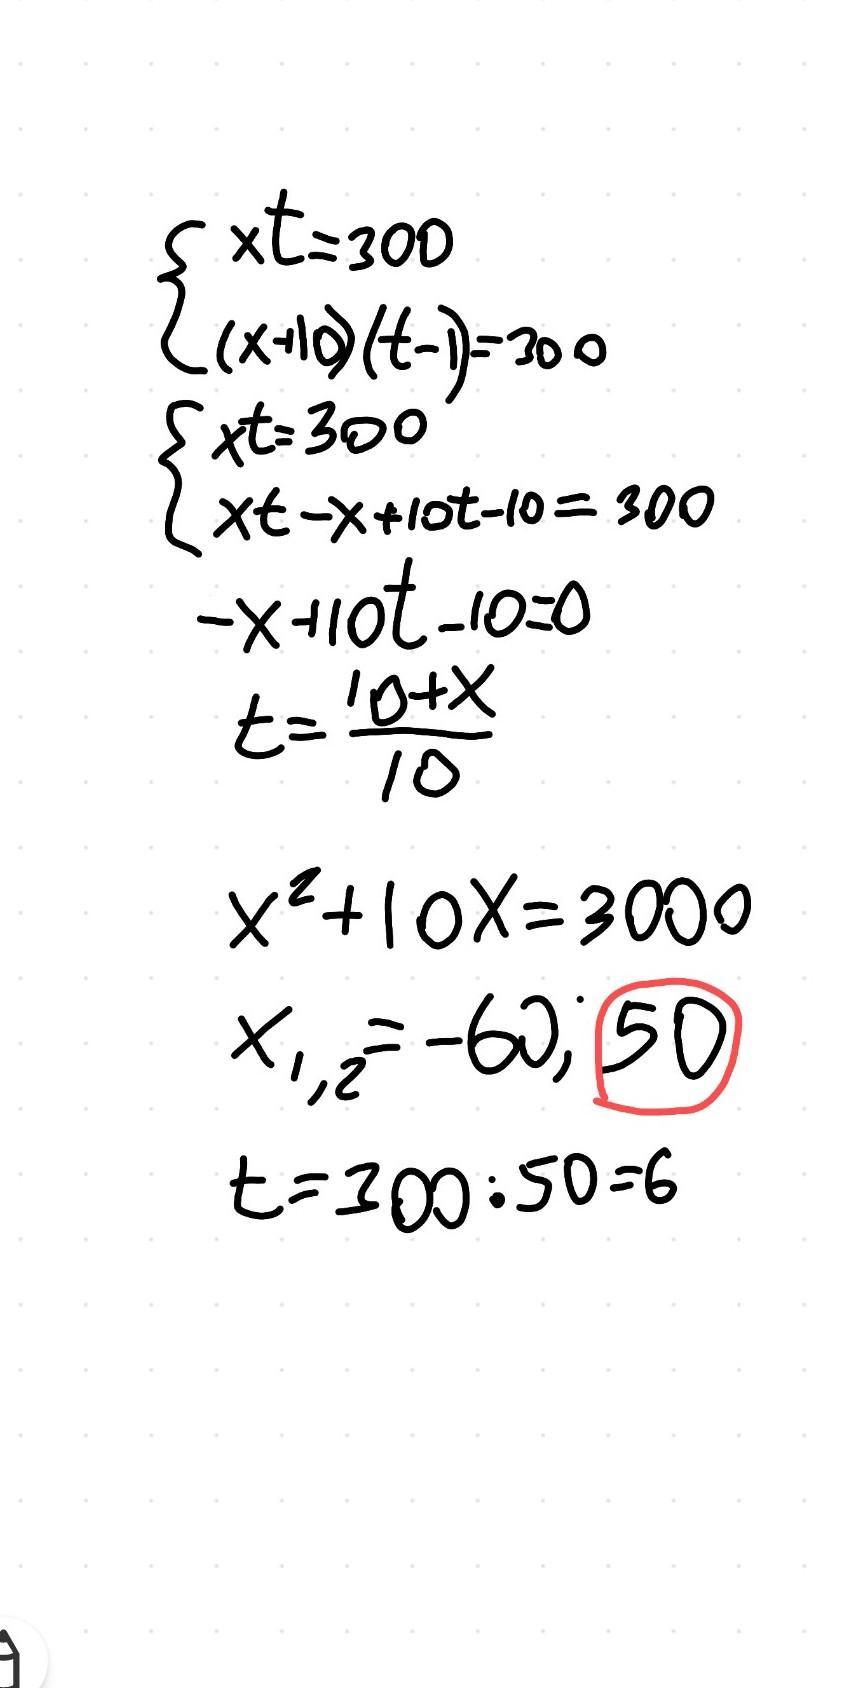 { xt=300
(x+10)(t-1)=300
{ xt=300
xt-x+10t-10=300
-x+10t-10=0
t=10+x/10
x²+10x=3000
x1,2=-60; 50
t=300:50=6